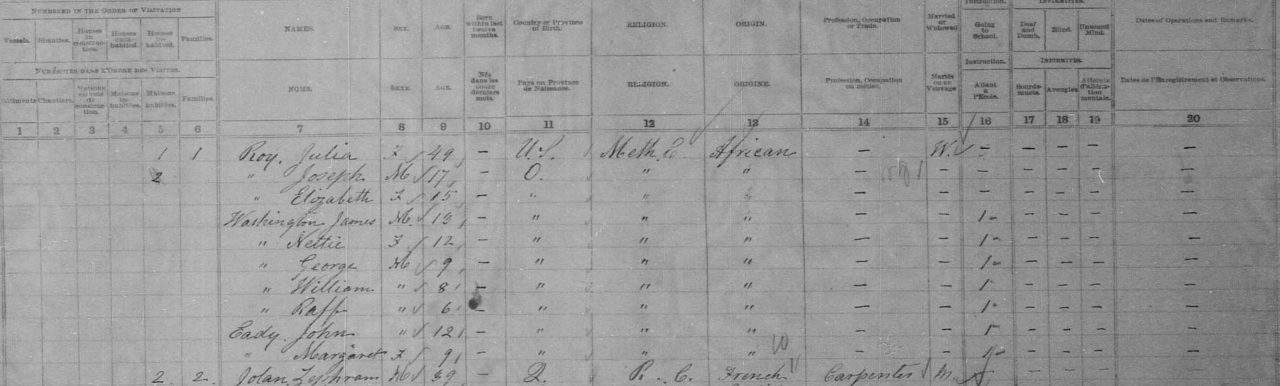 NUMBERED IN THE ORDER OF VISITATION NAMES. SEX. AGE. Born within last twelve months. Country or Province of Birth. RELIGION. ORIGIN. Profession, Occupation or Trade. Married or Widowed Going to School. Deaf and Dumb. Blind. Unsound Mind. Dates of Operations and Remarks.
Vessels. Shanties. Houses in construction. Houses uninhabited. Houses inhabited. Families.
NUMÉROTÉS DANS L'ORDRE DES VISITES. NOMS. SEXE. AGE. Nés dans les douze derniers mois. Pays ou Province de Naissance. RELIGION. ORIGINE. Profession, Occupation ou métier. Mariés ou en Veuvage Instruction. Allant à l'École. INFIRMITÉS. Sourds-muets. Aveugles. Dates de l'Enregistrement et Observations.
Bâtiments Chantiers. Maisons inhabitées. Maisons habitées. Familles.
1 2 3 4 5 6 7 8 9 10 11 12 13 14 15 16 17 18 19 20
1 1 Roy, Julia F 49 – U.S. Meth. E. African – W. – – – – –
2 " Joseph M 17 – O. " " – – – – –
" Elizabeth F 15 – " " " – – – – – –
Washington James M 13 – " " " – 1 – – – –
" Nettie F 12 – " " " – 1 – – – –
" George M 9 – " " " – 1 – – – –
" William " 8 – " " " – 1 – – – –
" Raff " 6 – " " " – 1 – – – –
Eady, John " 12 – " " " – 1 – – – –
" Margaret F 9 – " " " – – – – –
2 2 M 39 – Q. R. C. French Carpenter M. – – – –